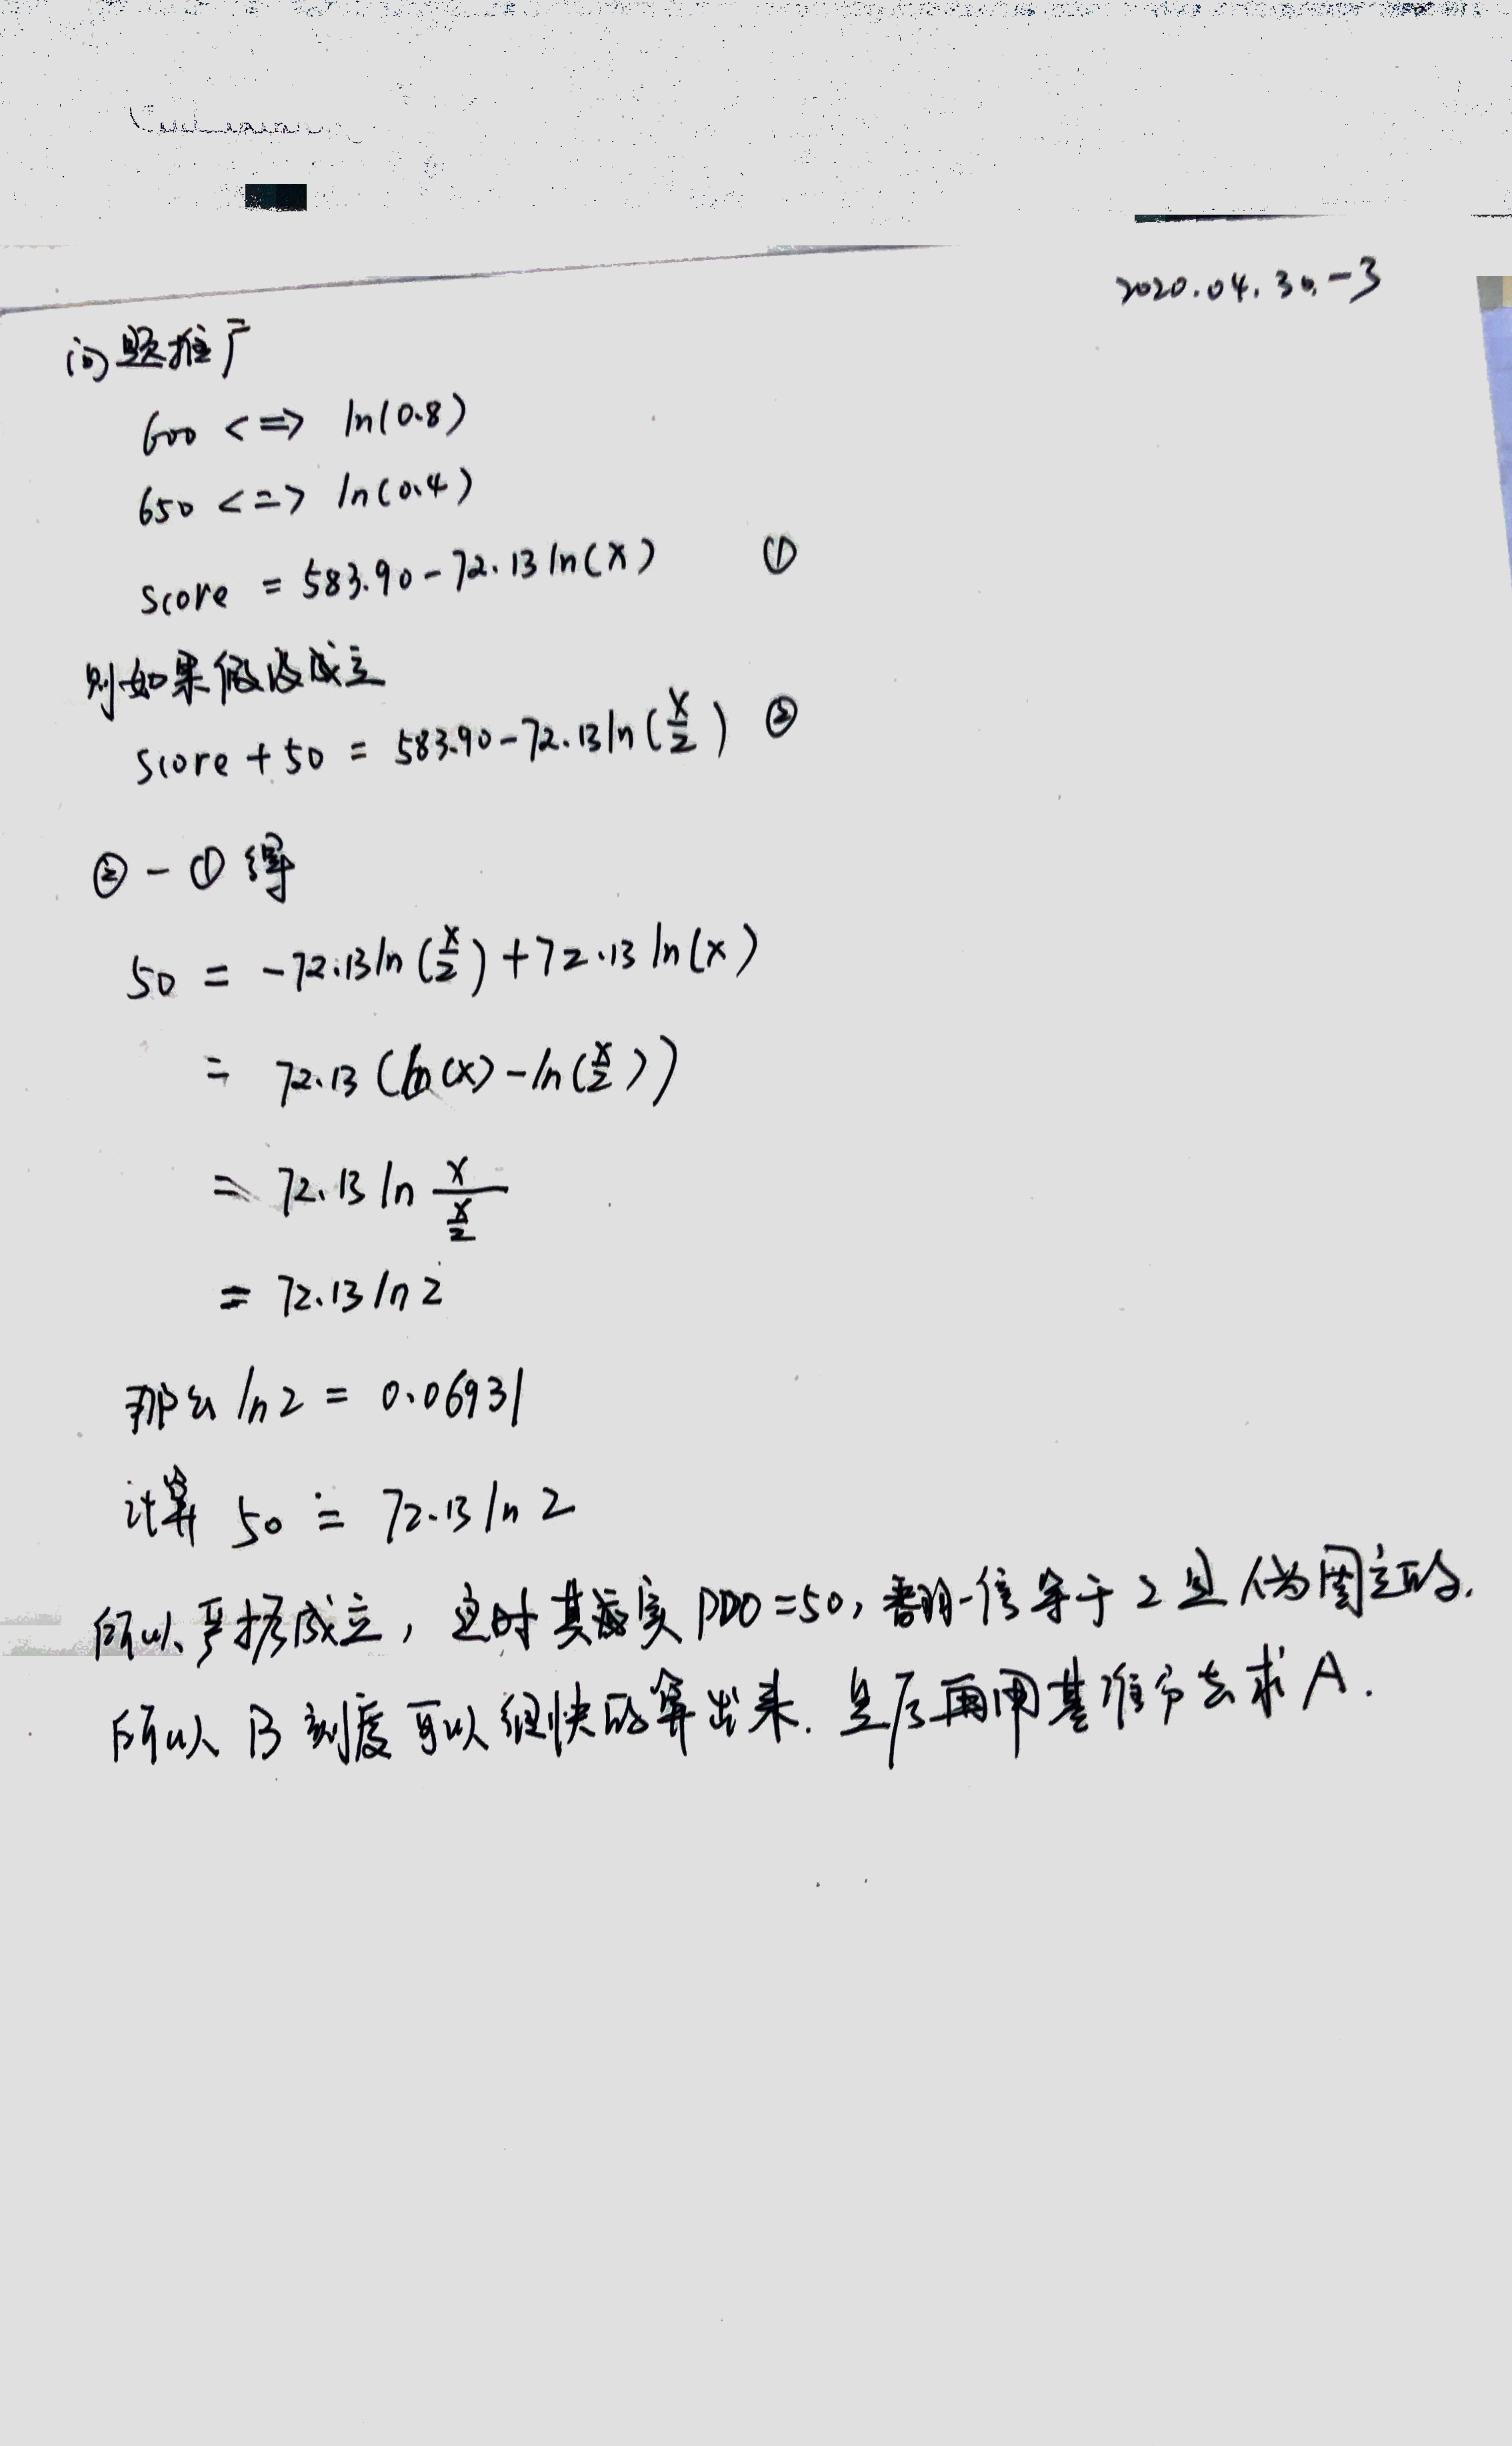 2020.04.30.-3
问题推广
600 <=> ln(0.8)
650 <=> ln(0.4)
score = 583.90-72.13ln(x) ①
则如果假设成立
score+50 = 583.90-72.13ln(x/2) ②
②-①得
50 = -72.13ln(x/2)+72.13ln(x)
= 72.13(ln(x)-ln(x/2))
= 72.13 ln x/(x/2)
= 72.13 ln 2
那么 ln2 = 0.06931
计算 50 ≐ 72.13 ln 2
所以严格成立, 这时其实 PDO=50, 翻一倍等于2且为固定的.
所以 B 刻度可以很快的算出来. 最后再用基准分去求A.